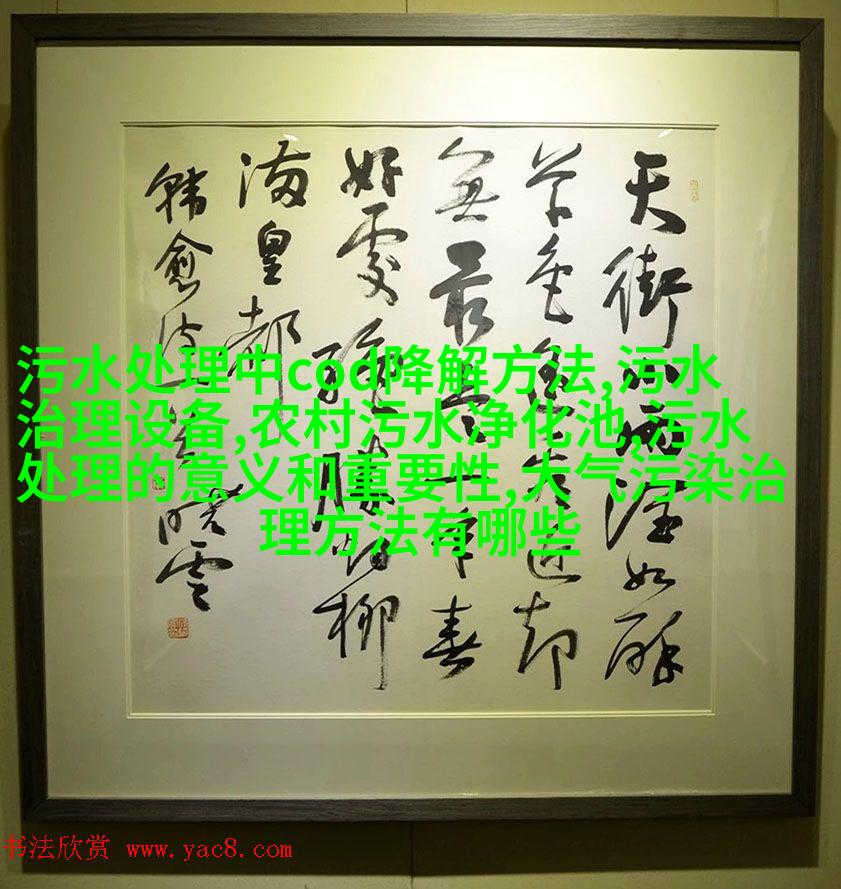 天街小雨潤如酥
草色遙看近却
無最是一年春
好處絕勝烟柳
滿皇都
韓愈詩 曉雲
污水处理中cod降解方法,污水
治理设备,农村污水净化池,污水
处理的意义和重要性,大气污染治
理方法有哪些
书法欣赏 www.yac8.com